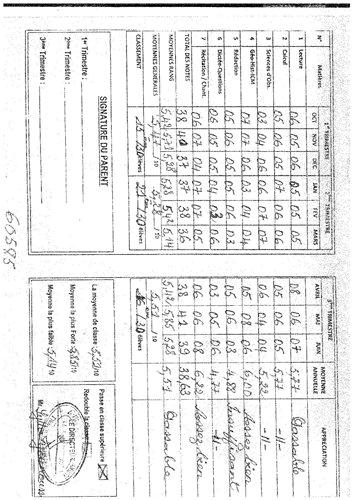 N° Matières 1er TRIMESTRE 2ème TRIMESTRE 3ème TRIMESTRE MOYENNE ANNUELLE APPRECIATION
OCT NOV DEC JAN FEV MARS AVRIL MAI JUIN
1 Lecture 06 05 06 05 05 05 08 06 07 5,77 Passable
2 Calcul 05 06 05 07 06 06 06 06 05 5,77 -//-
3 Sciences d'Obs. 04 06 06 07 06 04 04 5,22 -//-
4 Géo-Hist-ICM 07 07 06 03 04 04 05 08 06 6,00 Assez bien
5 Rédaction 05 05 05 06 03 04 06 03 4,88 Insuffisant
6 Dictée-Questions 06 05 05 04 03 06 03 05 06 4,77 -//-
7 Récitation / Chant. 06 07 04 07 07 05 06 06 08 6,22 Assez bien
TOTAL DES NOTES 38 40 37 37 38 36 38 41 39 38,63
MOYENNES RANG 5,42 5,71 5,28 5,28 5,42 5,14 5,42 5,85 5,51 Passable
MOYENNES GENERALES 5,47 /10 5,28 /10
CLASSEMENT 15 ème /30 élèves /30 élèves /30 élèves
SIGNATURE DU PARENT
1er Trimestre :
2ème Trimestre :
3ème Trimestre :
La moyenne de classe 5,52/10
Moyenne la plus Forte 5,85/10
Moyenne la plus faible 5,14/10
Passe en classe supérieure
Redouble la classe
60595